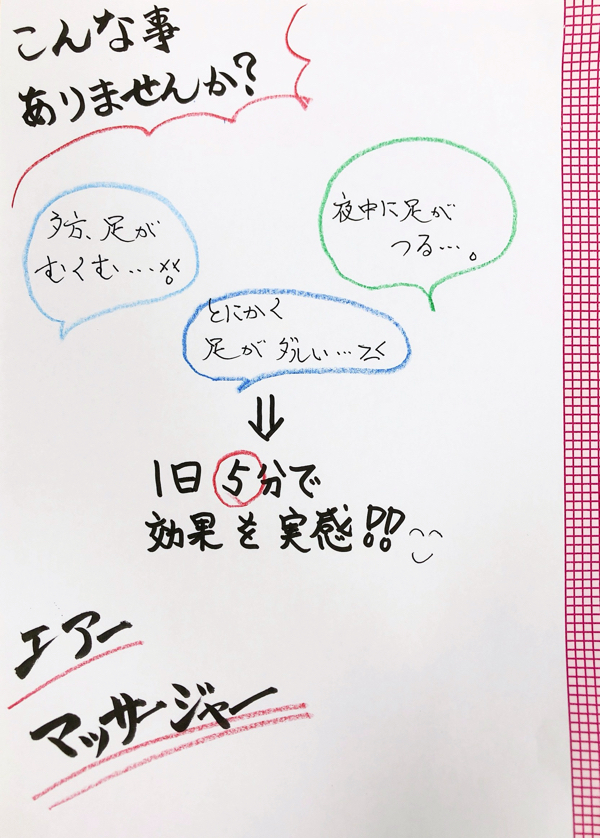 こんな事
ありませんか?
夕方、足が
むくむ…
夜中に足が
つる…。
とにかく
足がダルい…
⇓
1日5分で
効果を実感!!
エアー
マッサージャー